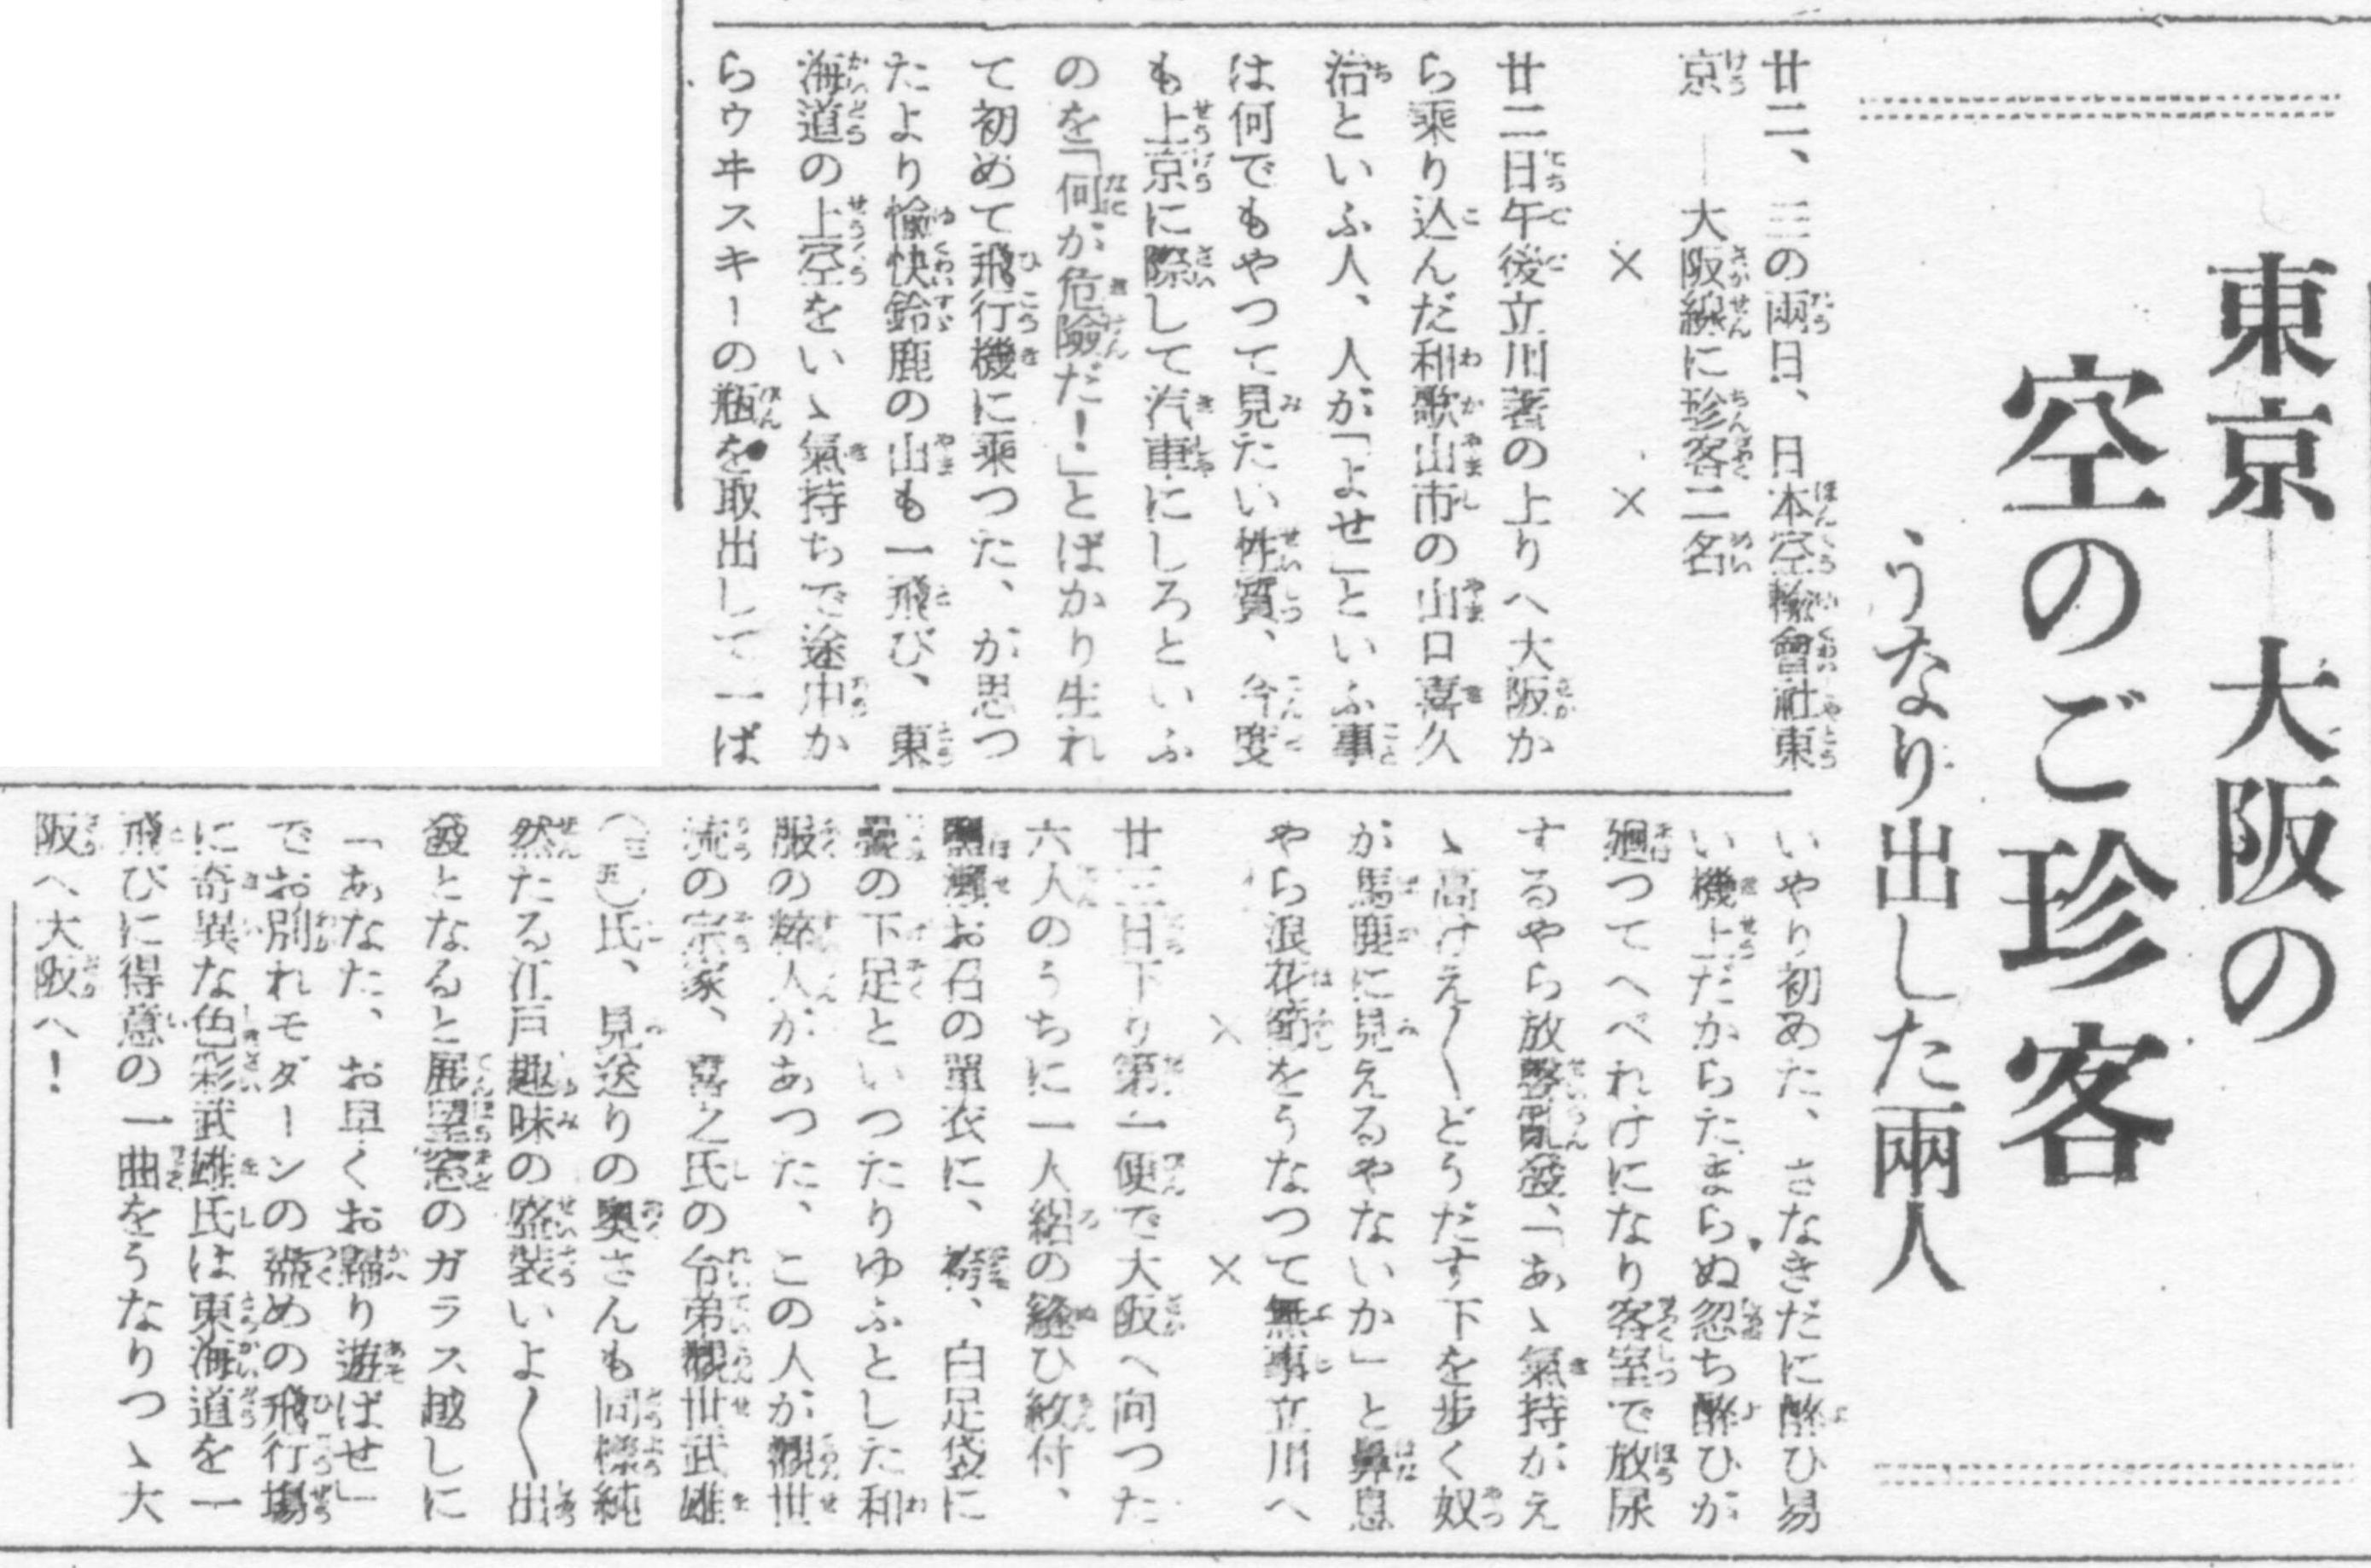 東京―大阪の
空のご珍客
うなり出した兩人
廿二、三の兩日、日本空輸會社東
京―大阪線に珍客二名
× ×
廿二日午後立川著の上りへ大阪か
ら乘り込んだ和歌山市の山口喜久
治といふ人、人が「よせ」といふ事
は何でもやつて見たい性質、今度
も上京に際して汽車にしろといふ
のを「何が危險だ!」とばかり生れ
て初めて飛行機に乘つた、が思つ
たより愉快鈴鹿の山も一飛び、東
海道の上空をいゝ氣持ちで途中か
らウヰスキーの瓶を取出して一ぱ
いやり初めた、さなきだに醉ひ易
い機上だからたまらぬ忽ち醉ひが
廻つてへべれけになり客室で放尿
するやら放聲亂發、「あゝ氣持がえ
ゝ高けえ〱どうだす下を歩く奴
が馬鹿に見えるやないか」と鼻息
やら浪花節をうなつて無事立川へ
× ×
廿三日下り第一便で大阪へ向つた
六人のうちに一人絽の縫ひ紋付、
お召の單衣に、袴、白足袋に
疊の下足といつたりゆふとした和
服の粹人があつた、この人が觀世
流の宗家、喜之氏の令弟觀世武雄
(三五)氏、見送りの奥さんも同樣純
然たる江戸趣味の盛裝いよ〱出
發となると展望窓のガラス越しに
「あなた、お早くお歸り遊ばせ」
でお別れモダーンの盡めの飛行場
に奇異な色彩武雄氏は東海道を一
飛びに得意の一曲をうなりつゝ大
阪へ大阪へ!